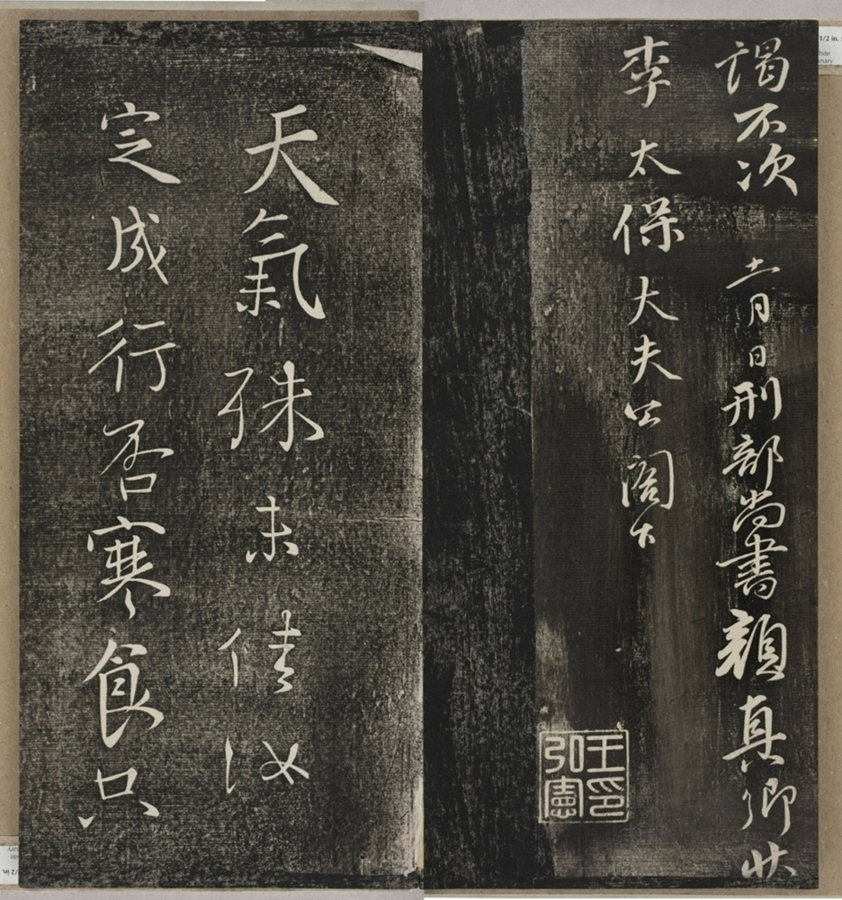 謁不次 十一月日刑部尚書顏真卿狀
李太保大夫公閣下
王印弘憲
天氣殊未佳汝
定成行否寒食只
1/2 in.